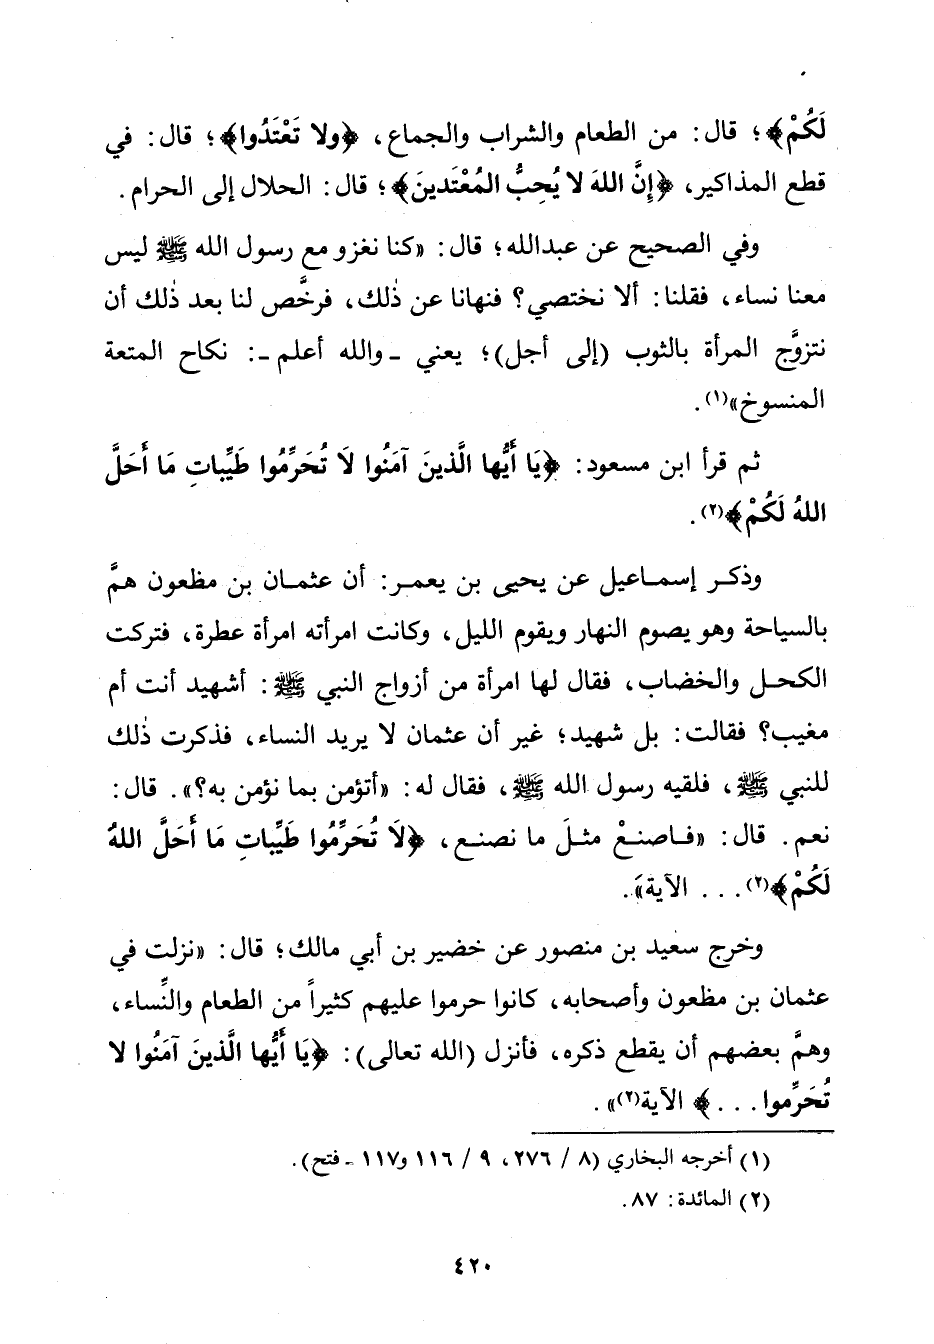 لَكُمْ﴾؛ قال: من الطعام والشراب والجماع، ﴿ولا تَعْتَدُوا﴾؛ قال: في
قطع المذاكير، ﴿إِنَّ اللهَ لا يُحِبُّ المُعْتَدينَ﴾؛ قال: الحلال إلى الحرام.
وفي الصحيح عن عبدالله؛ قال: «كنا نغزو مع رسول الله ﷺ ليس
معنا نساء، فقلنا: ألا نختصي؟ فنهانا عن ذٰلك، فرخَّص لنا بعد ذٰلك أن
نتزوَّج المرأة بالثوب (إلى أجل)؛ يعني ـ والله أعلم ـ: نكاح المتعة
المنسوخ»(١).
ثم قرأ ابن مسعود: ﴿يَا أَيُّها الَّذينَ آمَنُوا لَا تُحَرِّمُوا طَيِّباتِ مَا أَحَلَّ
اللهُ لَكُمْ﴾(٢).
وذكر إسماعيل عن يحيى بن يعمر: أن عثمان بن مظعون همَّ
بالسياحة وهو يصوم النهار ويقوم الليل، وكانت امرأته امرأة عطرة، فتركت
الكحل والخضاب، فقال لها امرأة من أزواج النبي ﷺ: أشهيد أنت أم
مغيب؟ فقالت: بل شهيد؛ غير أن عثمان لا يريد النساء، فذكرت ذٰلك
للنبي ﷺ، فلقيه رسول الله ﷺ، فقال له: «أتؤمن بما نؤمن به؟». قال:
نعم. قال: «فاصنعْ مثلَ ما نصنع، ﴿لَا تُحَرِّمُوا طَيِّباتِ مَا أَحَلَّ اللهُ
لَكُمْ﴾(٢)... الآية».
وخرج سعيد بن منصور عن خضير بن أبي مالك؛ قال: «نزلت في
عثمان بن مظعون وأصحابه، كانوا حرموا عليهم كثيراً من الطعام والنِّساء،
وهمَّ بعضهم أن يقطع ذكره، فأنزل (الله تعالى): ﴿يَا أَيُّها الَّذينَ آمَنُوا لا
تُحَرِّموا...﴾ الآية(٢)».
(١) أخرجه البخاري (٨ / ٢٧٦، ٩ / ١١٦ و١١٧ ـ فتح).
(٢) المائدة: ٨٧.
٤٢٠